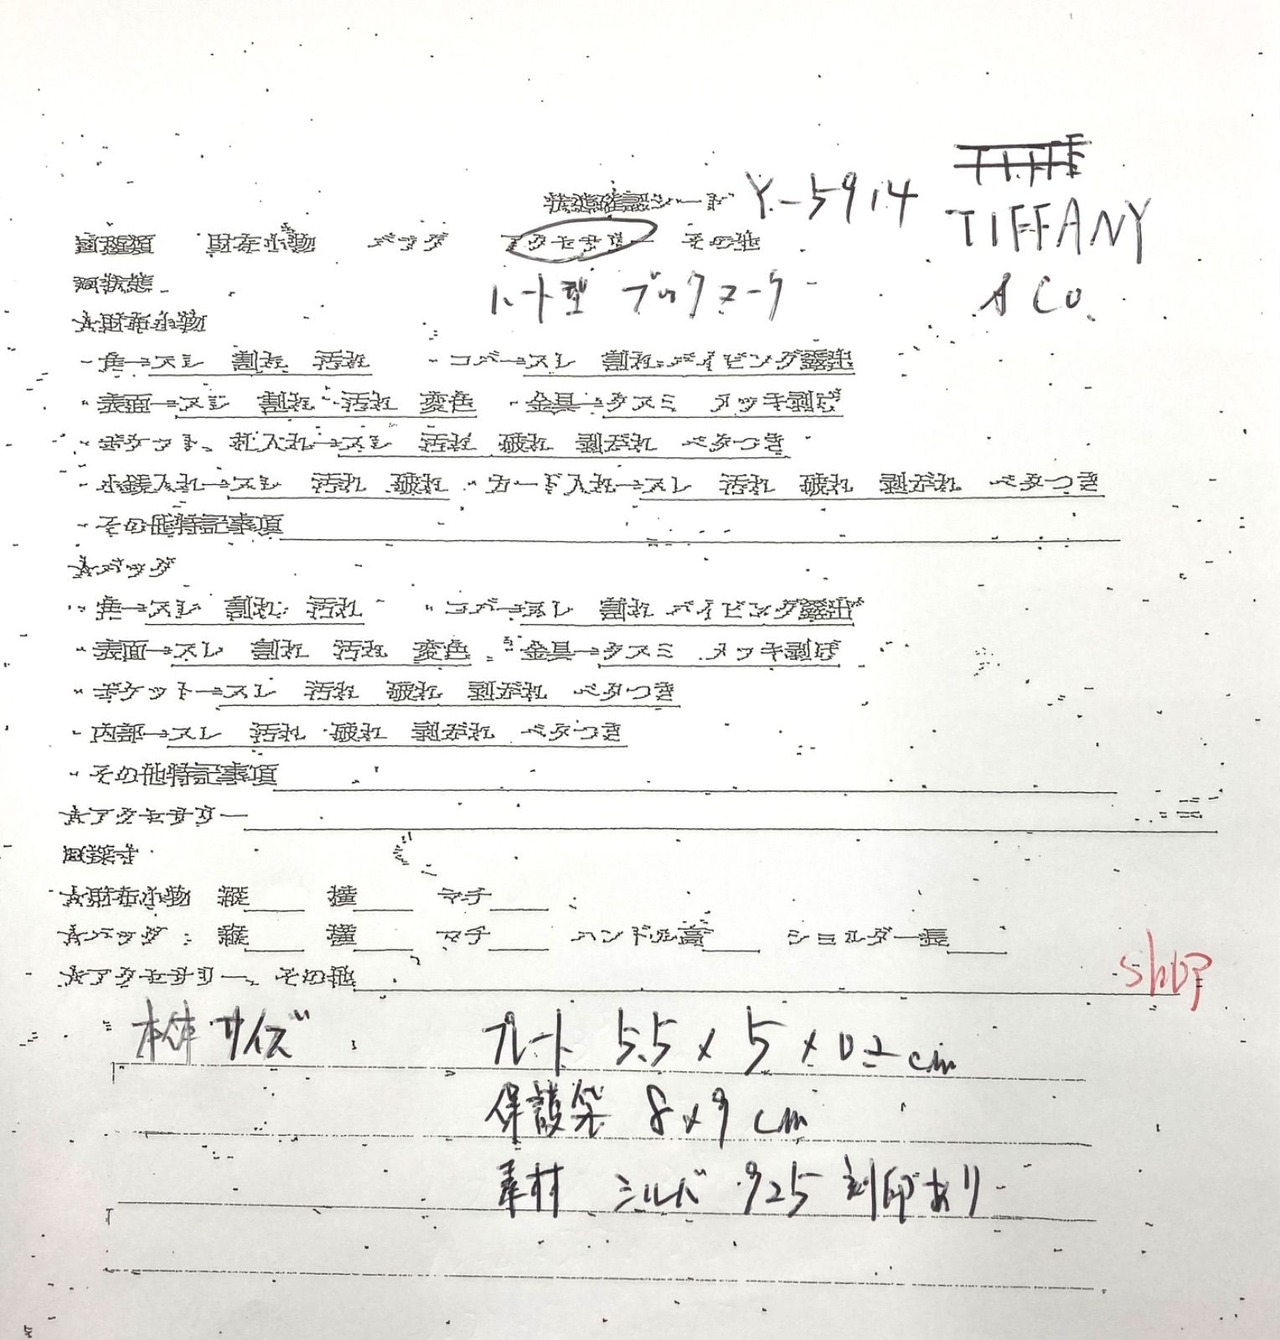 状態確認シート Y-5914
TIFFANY
& CO.
財布小物 バッグ アクセサリー その他
ハート型 ブックマーク
■状態
★財布小物
・角→スレ 割れ 汚れ ・コバ→スレ 割れ パイピング露出
・表面→スレ 割れ 汚れ 変色 ・金具→クスミ メッキ剥げ
・ポケット、札入れ→スレ 汚れ 破れ 剥がれ ベタつき
・小銭入れ→スレ 汚れ 破れ ・カード入れ→スレ 汚れ 破れ 剥がれ ベタつき
・その他特記事項
★バッグ
・角→スレ 割れ 汚れ ・コバ→スレ 割れ パイピング露出
・表面→スレ 割れ 汚れ 変色 ・金具→クスミ メッキ剥げ
・ポケット→スレ 汚れ 破れ 剥がれ ベタつき
・内部→スレ 汚れ 破れ 剥がれ ベタつき
・その他特記事項
★アクセサリー
■採寸
★財布小物 縦 横 マチ
★バッグ 縦 横 マチ ハンドル高 ショルダー長
★アクセサリー、その他
shop
本体サイズ プレート 5.5 x 5 x 0.2 cm
保護袋 8 x 9 cm
素材 シルバ 925 刻印あり